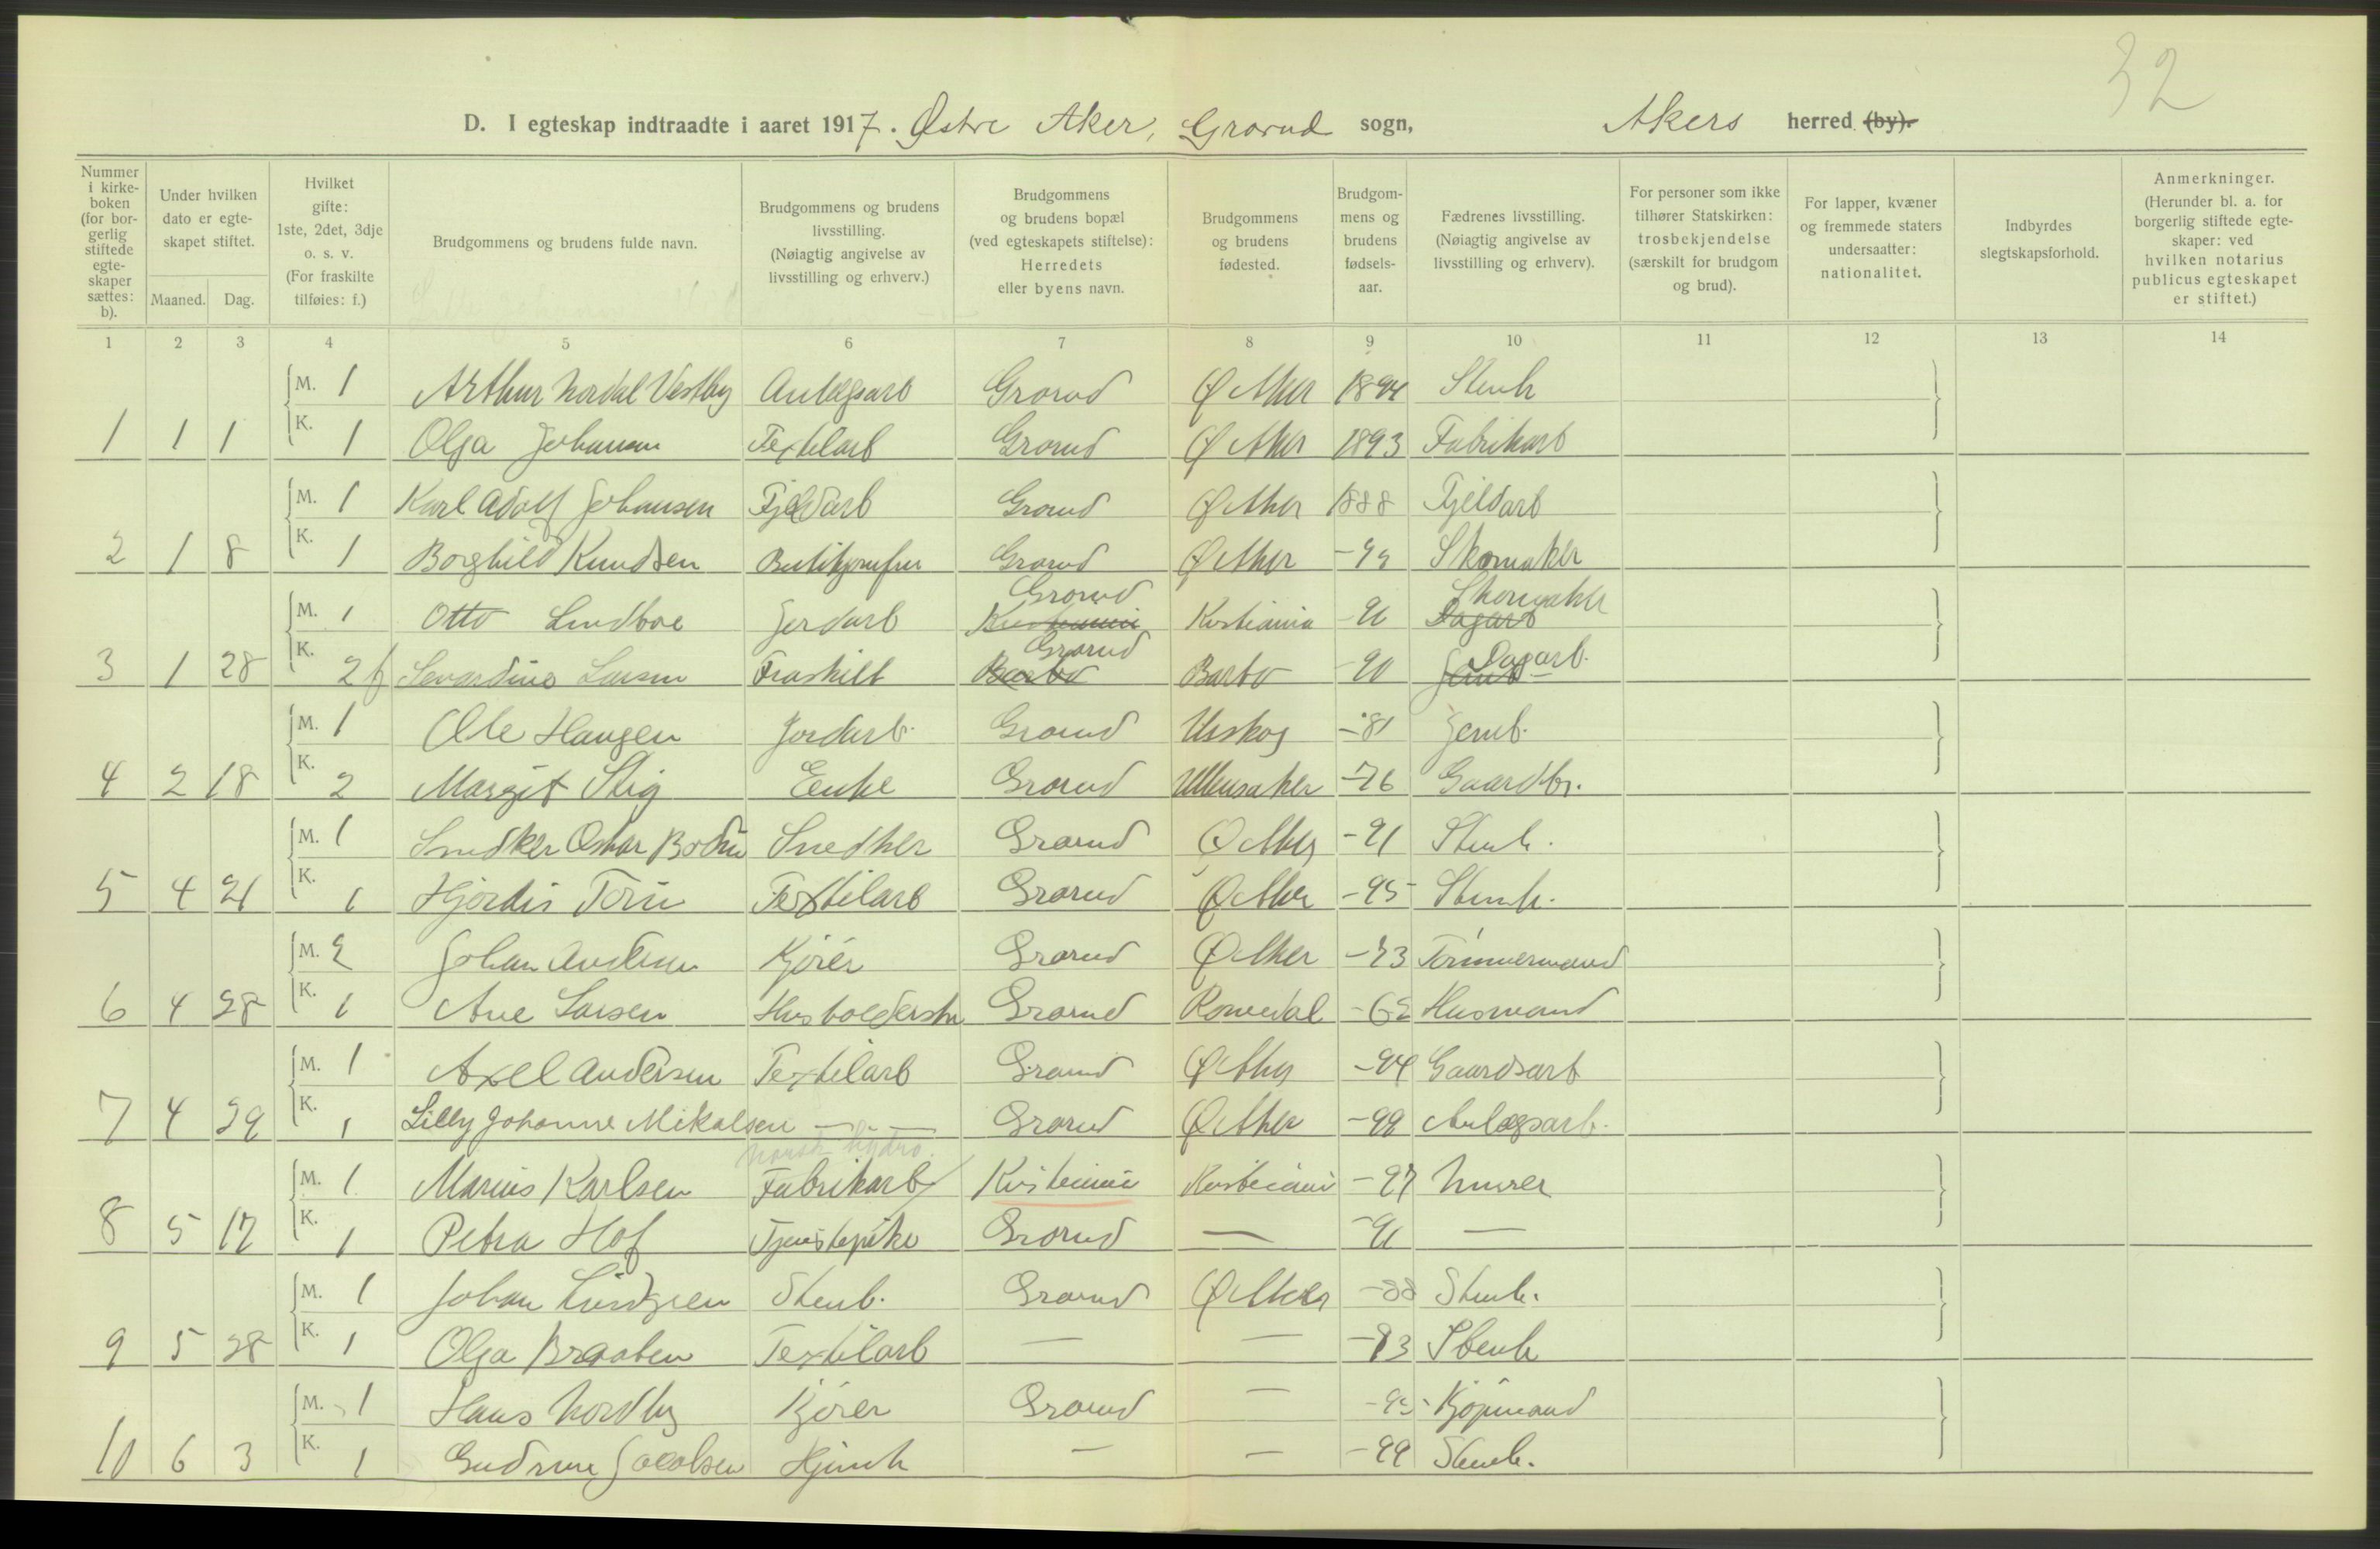 32
D. I egteskap indtraadte i aaret 1917. Østre Aker, Grorud sogn, Akers herred (by).
Nummer i kirkeboken (for borgerlig stiftede egteskaper sættes: b).
Under hvilken dato er egteskapet stiftet.
Maaned. Dag.
Hvilket gifte: 1ste, 2det, 3dje o. s. v. (For fraskilte tilføies: f.)
Brudgommens og brudens fulde navn.
Brudgommens og brudens livsstilling. (Nøiagtig angivelse av livsstilling og erhverv.)
Brudgommens og brudens bopæl (ved egteskapets stiftelse): Herredets eller byens navn.
Brudgommens og brudens fødested.
Brudgommens og brudens fødselsaar.
Fædrenes livsstilling. (Nøiagtig angivelse av livsstilling og erhverv).
For personer som ikke tilhører Statskirken: trosbekjendelse (særskilt for brudgom og brud).
For lapper, kvæner og fremmede staters undersaatter: nationalitet.
Indbyrdes slegtskapsforhold.
Anmerkninger. (Herunder bl. a. for borgerlig stiftede egteskaper: ved hvilken notarius publicus egteskapet er stiftet.)
1 2 3 4 5 6 7 8 9 10 11 12 13 14
M. 1 Arthur Nordal Vestby Anlægsarb Grorud Ø Aker 1894 Stenh
1 1 1 K. 1 Olga Johansen Textilarb Grorud Ø Aker 1893 Fabrikarb
M. 1 Karl Adolf Johansen Fjeldarb Grorud Ø Aker 1888 Fjeldarb
2 1 8 K. 1 Borghild Knudsen Butikjomfru Grorud Ø Aker Skomaker
Grorud Skomaker
M. 1 Otto Lindboe Jordarb Kristiania Kristiania Dagarb
Grorud Dagarb.
3 1 28 K. 2 f Larsen Fraskilt Barbo Barbo -90
M. 1 Ole Haugen Jordarb. Grorud Urskog -81 Jernb.
4 2 18 K. 2 Margit Stig Enke Grorud Ullensaker -76 Gaardbr.
M. 1 Snedker Oskar Bodin Snedker Grorud Ø Aker -91 Stenh.
5 4 21 K. 1 Hjördis Torin Textilarb Grorud Ø Aker -95 Stenh.
M. 2 Johan Andersen Kjörer Grorud Ø Aker -73 Tömmermand
6 4 28 K. 1 Ane Larsen Husholderske Grorud Romedal -62 Husmand
M. 1 Axel Andersen Textilarb Grorud Ø Aker -94 Gaardsarb
7 4 29 K. 1 Lilly Johanne Mikalsen — " — Grorud Ø Aker -99 Anlægsarb.
Norsk Hydro.
M. 1 Marius Karlsen Fabrikarb Kristiania Kristiania -97 Murer
8 5 17 K. 1 Petra Hof Tjenestepike Grorud — —
M. 1 Johan Lindgren Stenh. Grorud Ø Aker -88 Stenh.
9 5 28 K. 1 Olga Braaten Textilarb — — -93 Stenh
M. 1 Hans Nordby Kjörer Grorud — Kjöpmand
10 6 3 K. 1 Gudrun Jacobsen Hjemh — — -99 Stenh.